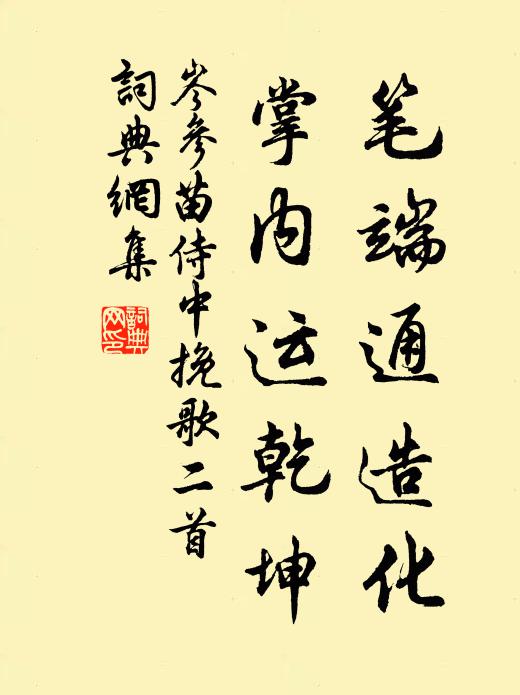 笔端通造化
掌内运乾坤
岑參苗侍中挽歌二首
詞典網集
詞典網印